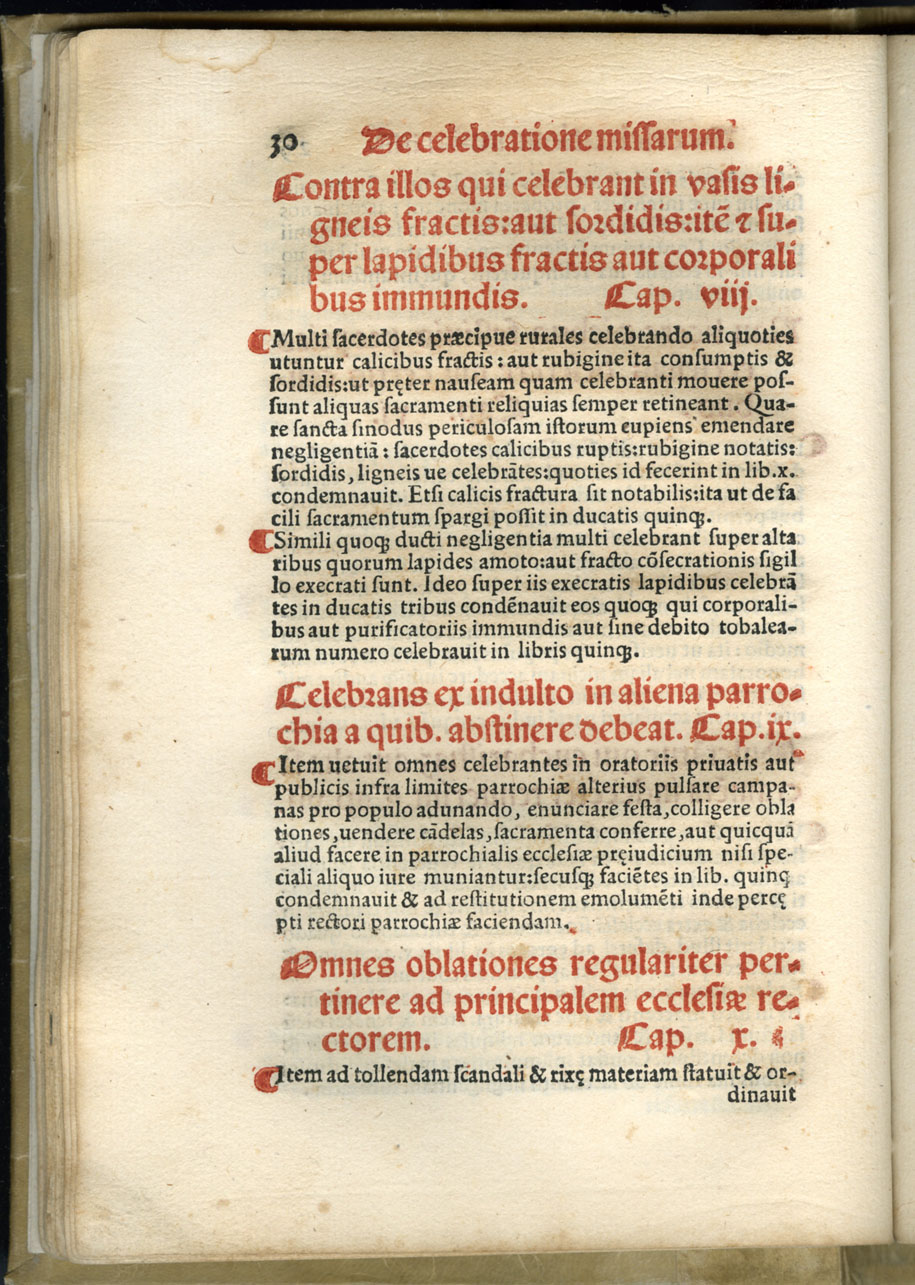 30 De celebratione miſſarum.
Contra illos qui celebrant in vaſis li-
gneis fractis:aut ſordidis:itē ⁊ ſu-
per lapidibus fractis aut corporali
bus immundis. Cap. viij.
¶Multi ſacerdotes præcipue rurales celebrando aliquoties
utuntur calicibus fractis : aut rubigine ita conſumptis &
ſordidis:ut pręter nauſeam quam celebranti mouere poſ-
ſunt aliquas ſacramenti reliquias ſemper retineant . Qua-
re ſancta ſinodus periculoſam iſtorum eupiens emendare
negligentiā : ſacerdotes calicibus ruptis:rubigine notatis:
ſordidis, ligneis ue celebrātes:quoties id fecerint in lib.x.
condemnauit. Etſi calicis fractura ſit notabilis:ita ut de fa
cili ſacramentum ſpargi poſſit in ducatis quinqꝫ.
¶Simili quoqꝫ ducti negligentia multi celebrant ſuper alta
ribus quorum lapides amoto:aut fracto cōſecrationis ſigil
lo execrati ſunt. Ideo ſuper iis execratis lapidibus celebrā
tes in ducatis tribus condēnauit eos quoqꝫ qui corporali-
bus aut purificatoriis immundis aut ſine debito tobalea-
rum numero celebrauit in libris quinqꝫ.
Celebrans ex indulto in aliena parro-
chia a quib. abſtinere debeat. Cap.ix.
¶Item uetuit omnes celebrantes in oratoriis priuatis aut
publicis infra limites parrochiæ alterius pulſare campa-
nas pro populo adunando, enunciare feſta,colligere obla
tiones,uendere cādelas,ſacramenta conferre,aut quicquā
aliud facere in parrochialis eccleſiæ pręiudicium niſi ſpe-
ciali aliquo iure muniantur:ſecuſqꝫ faciētes in lib. quinqꝫ
condemnauit & ad reſtitutionem emolumēti inde percę
pti rectori parrochiæ faciendam.
Omnes oblationes regulariter per-
tinere ad principalem eccleſiæ re-
ctorem. Cap. x.
¶Item ad tollendam ſcandali & rixę materiam ſtatuit & or-
dinauit